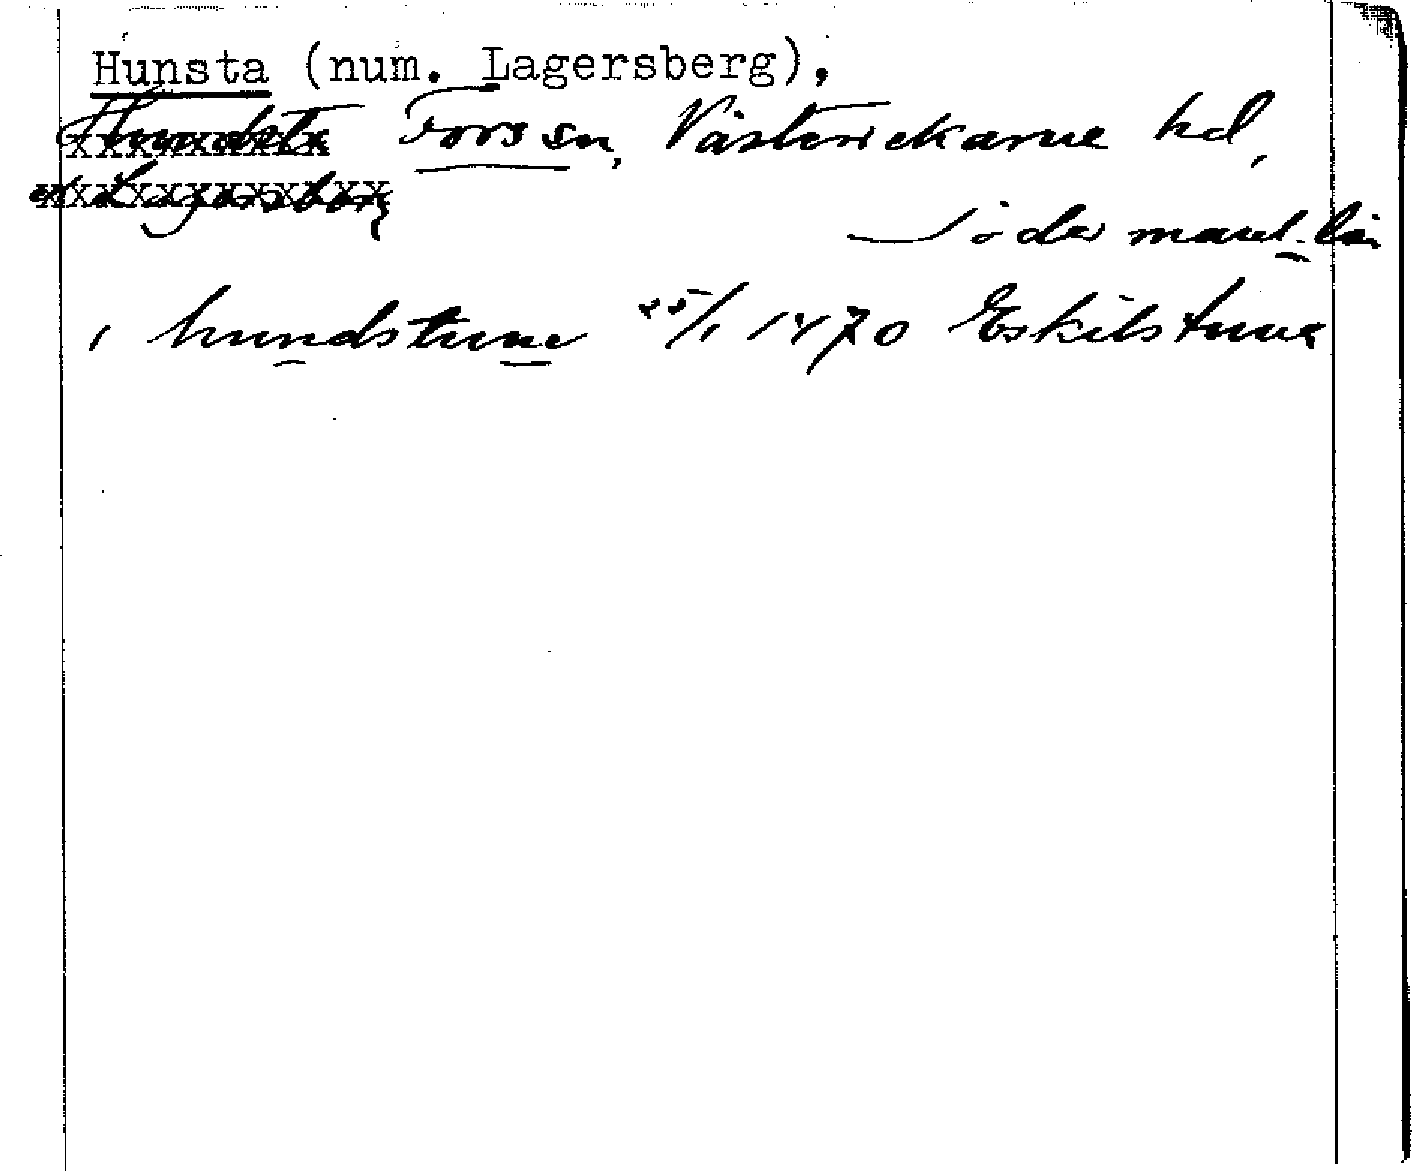 Hunsta (num. Lagersberg),
Hundsta Fors sn, Västerrekarne hd,
Lagersberg
Södermanl. län
i hundstune 25/1 1470 Eskilstuna